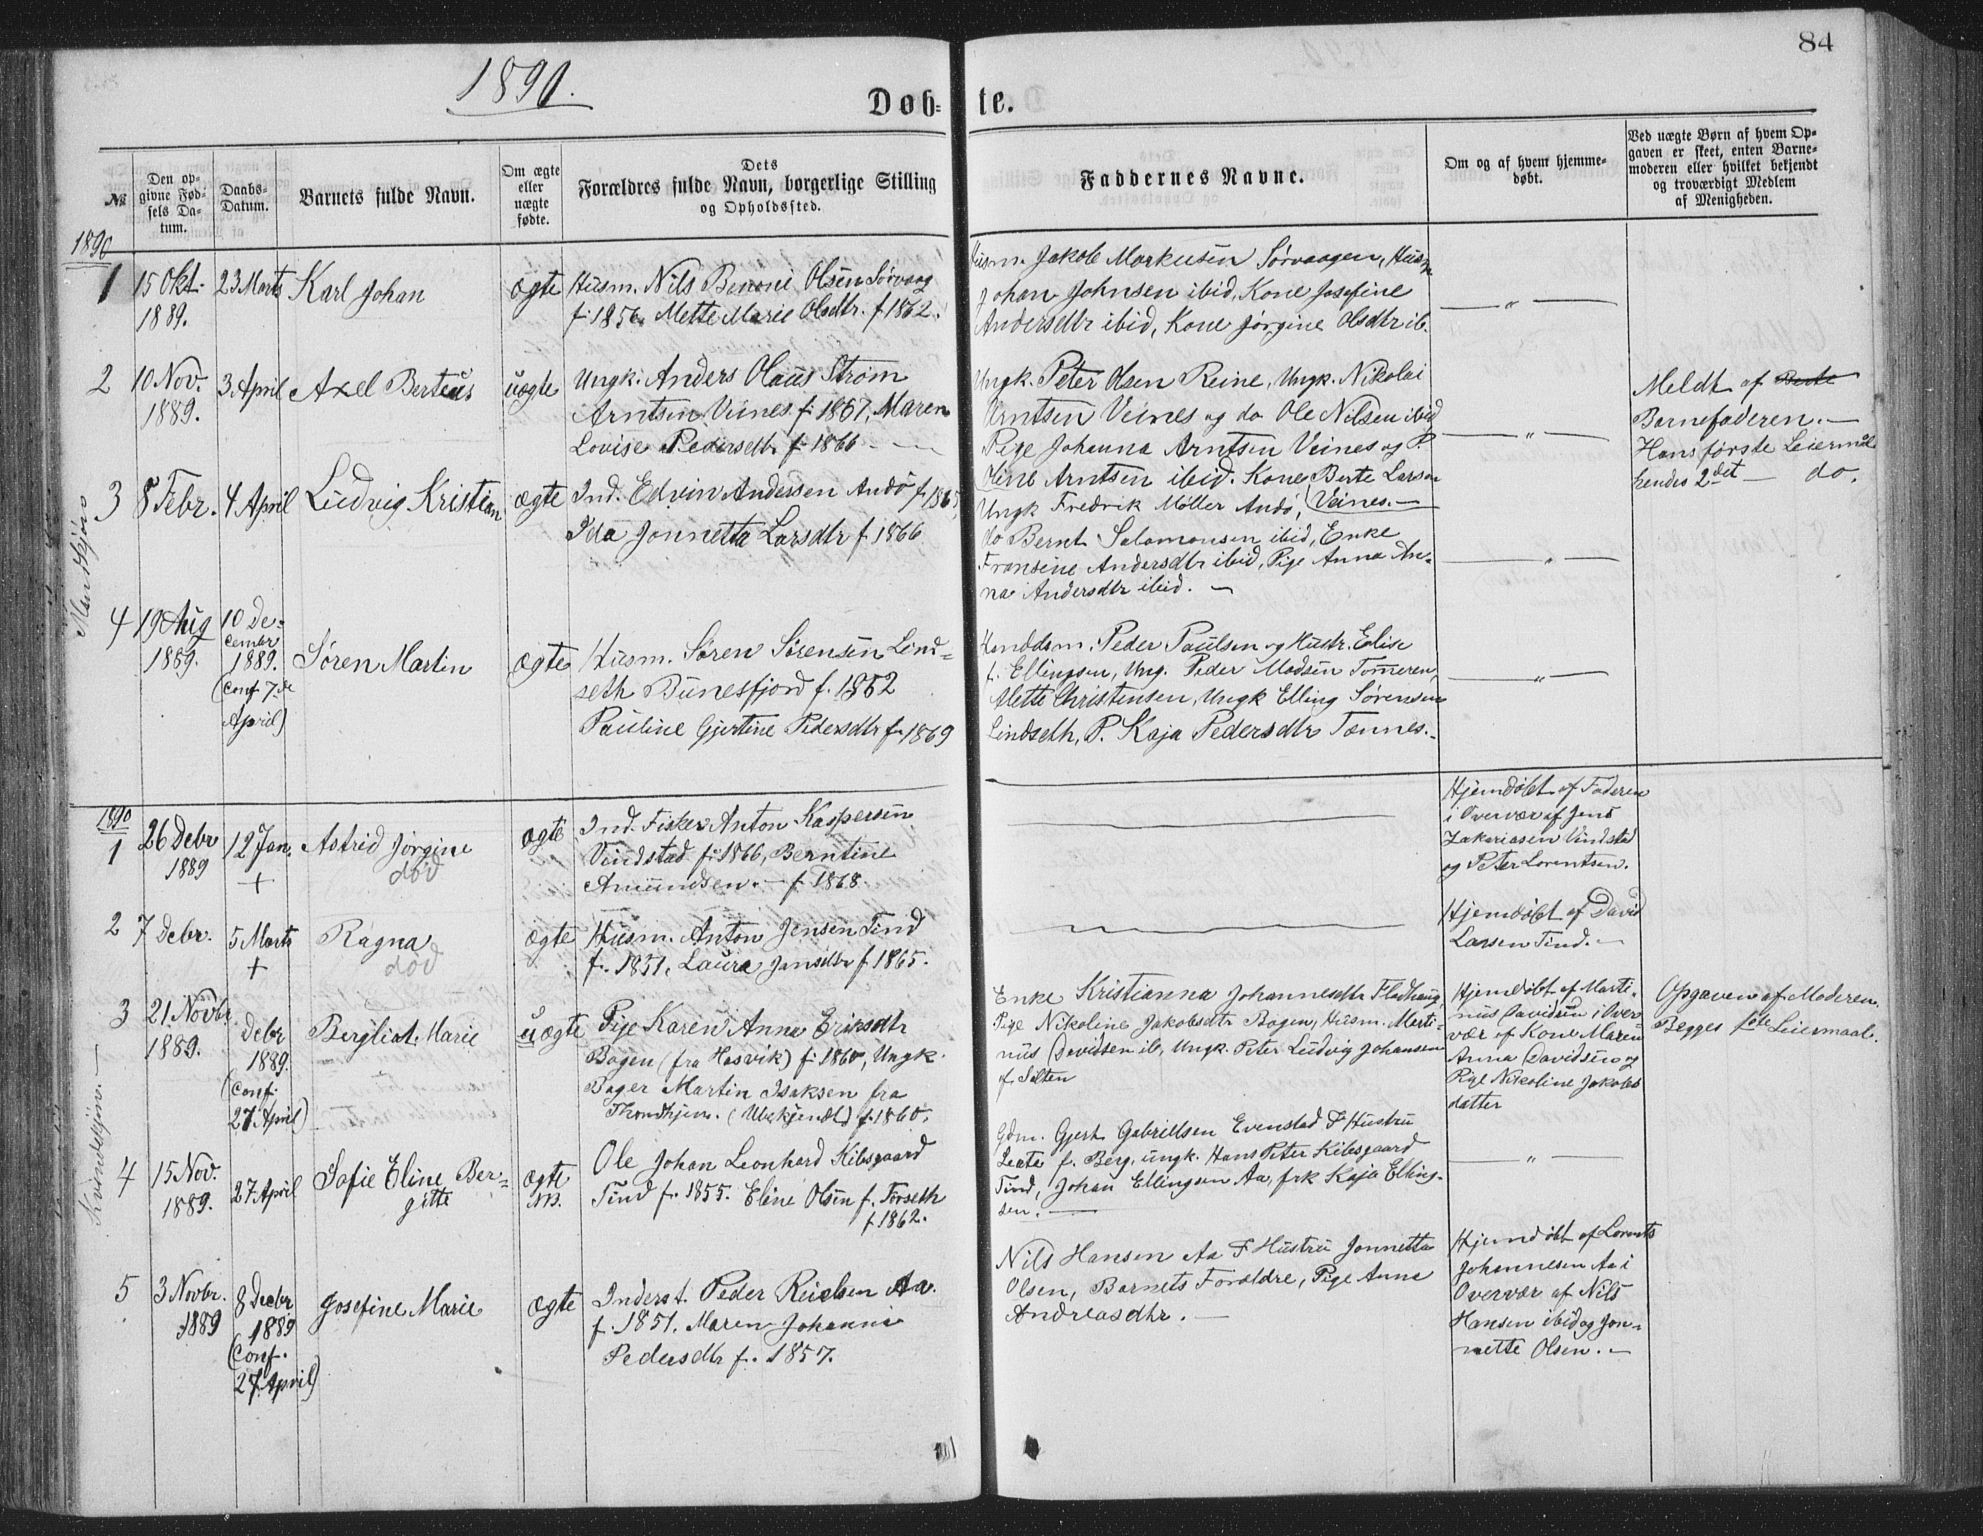 84
1890.
Døb-te.
№
Den op-
givne Fød-
sels Da-
tum.
Daabs-
Datum.
Barnets fulde Navn.
Om ægte
eller
uægte
fødte.
Dets
Forældres fulde Navn, borgerlige Stilling
og Opholdssted.
Faddernes Navne.
Om og af hvem hjemme-
døbt.
Ved uægte Børn af hvem Op-
gaven er skeet, enten Barne-
moderen eller hvilket bekjendt
og troværdigt Medlem
af Menigheden.
Mandkjøn
1890
1
15 Okt.
1889.
23 Marts
Karl Johan
ægte
Husm. Nils Benoni Olsen Sørvaag
f. 1856. Mette Marie Olsdtr. f. 1862.
Husm. Jakob Markusen Sørvaagen, Husm
Johan Johnsen ibid, Kone Josefine
Andersdtr ibid, Kone Jørgine Olsdtr ib.
— " —
2
10 Nov.
1889.
3 April
Axel Berteus
uægte
Ungk. Anders Olaus Strøm
Arntsen Veines f. 1867, Maren
Lovise Pedersdtr f. 1866 —
Ungk. Peter Olsen Reine, Ungk. Nikolai
Arntsen Veines og do Ole Nilsen ibid
Pige Johanna Arntsen Veines og P.
Arntsen ibid. Kone Berte Larsen
Veines. —
— " —
Meldt af Berte
Barnefaderen. —
Hans første Leiermål
hendes 2det — do.
3
8 Febr.
4 April
Ludvig Kristian
ægte
Ind. Edvin Andersen Andø f. 1865,
Ida Jonnetta Larsdtr f. 1866
Ungk Fredrik Möller Andø,
do Bernt Salamonsen ibid, Enke
Fransine Andersdtr ibid, Pige Anna An-
na Andersdtr ibid. —
— " —
4
19 Aug
1889.
10 De-
cembr
1889.
(Conf. 7de
April)
Søren Martin
ægte
Husm. Søren Sørensen Lind-
seth Bunesfjord f. 1862
Pauline Gjertine Pedersdtr f. 1869
Handdsm. Peder Paulsen og Hustr. Edise
f. Ellingsen, Ung. Peder Madsen Tomeren,
Mette Christensen, Ungk Elling Sørensen
Lindseth, P. Kaja Pedersdtr Tennes.-
— " —
Kvindekjøn. —
1890
1
26 Debr
1889
12 Jan.
+
Astrid Jørgine
død
ægte
Ind. Fisker Anton Kaspersen
Vindstad f. 1866, Berntine
Amundsen. — f. 1868.
Hjemdøbt af Faderen
i Overvær af Jens
Zakariasen Vindstad
og Peter Lorentsen.
2
7 Debr.
5 Marts
+
Ragna
død
ægte
Husm. Anton Jensen Tind
f. 1851, Laura Jansdtr f. 1865.
Hjemdøbt af David
Larsen Tind. —
3
21 Novbr.
1889.
Debr
1889.
(Conf.
27 April)
Bergliot Marie
uægte
Pige Karen Anna Eriksdtr
Bogen (fra Hasvik) f. 1860, Ungk.
Bager Martin Isaksen fra
Throndhjem. (Ubekjendt) f. 1860.
Enke Kristianna Johannesdtr Flodhaug
Pige Nikoline Jakobsdtr Bogen, Husm. Marti-
nus Davidsen ib, Ungk. Peter Ludvig Johansen
af Salten
Hjemdøbt af Marti-
nus Davidsen i Over
vær af Kone Maren
Anna Davidsen og
Pige Nikoline Jakobs
datter
Opgaven af Moderen.
Begges 1ste Leiermaal.
4
15 Nov.
1889.
27 April
Sofie Eline Ber-
gitte
ægte
Ole Johan Leonhard Kibsgaard
Tind f. 1855. Eline Olsen f. Forseth
f. 1862.
Gdm. Gjert Gabrielsen Evenstad & Hustru
f. Berg, ungk. Hans Peter Kibsgaard
Tind, Johan Ellingsen Aa, frk Kaja Elling-
sen. —
— " —
5
3 Novbr.
1889
8 Decbr
1889
(Conf.
27. April)
Josefine Marie
ægte
Inderst. Peder Aa.
f. 1851. Maren Johanne
Pedersdtr f. 1857.
Nils Hansen Aa & Hustru Jonnetta
Olsen, Barnets Forældre, Pige Anna
Andreasdtr. —
Hjemdøbt af Lorents
Johannesen Aa i
Overvær af Nils
Hansen ibid og Jon-
nette Olsen. —